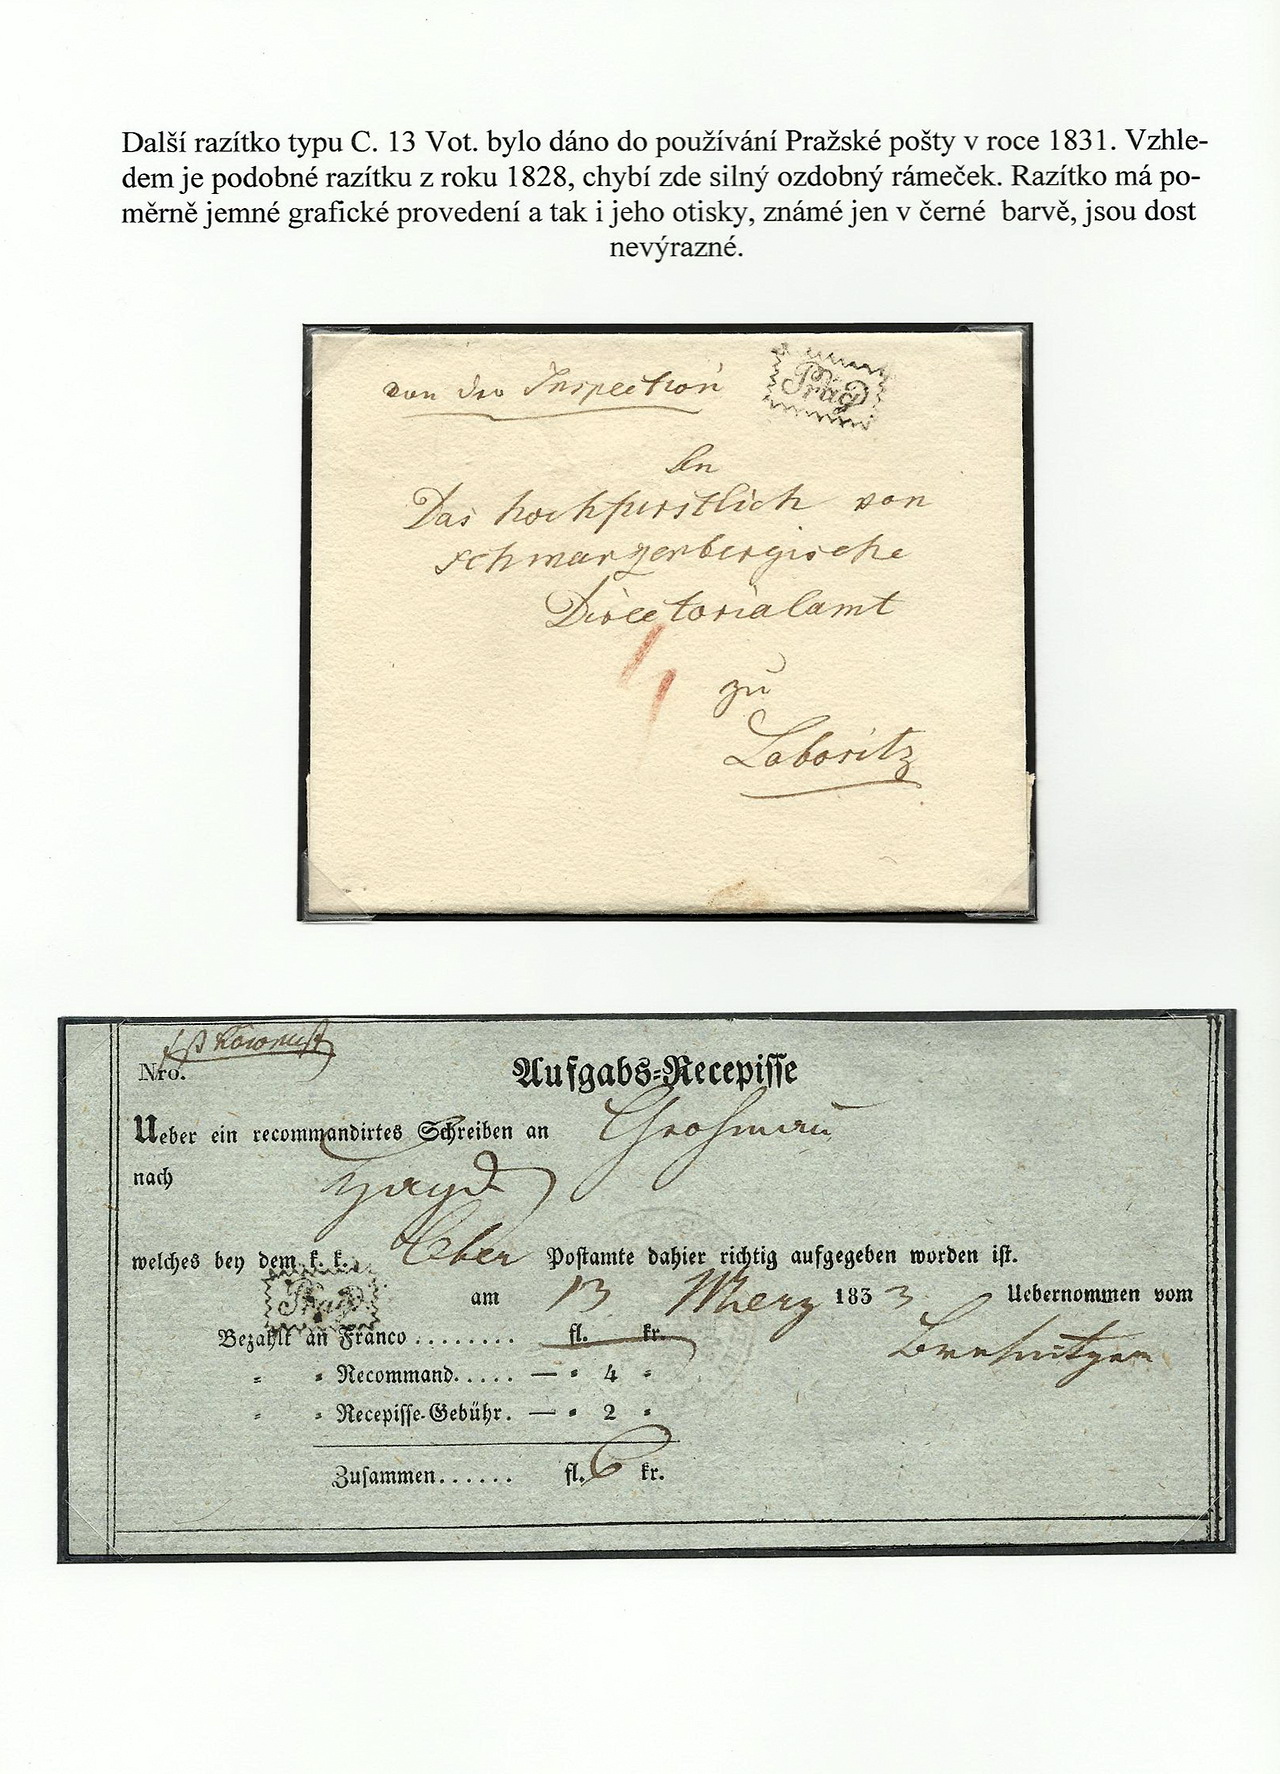 Další razítko typu C. 13 Vot. bylo dáno do používání Pražské pošty v roce 1831. Vzhle-
dem je podobné razítku z roku 1828, chybí zde silný ozdobný rámeček. Razítko má po-
měrně jemné grafické provedení a tak i jeho otisky, známé jen v černé barvě, jsou dost
nevýrazné.
von der Inspection
Prag
An
Das hochfurstlich von
schwarzenbergische
Directorialamt
zu
Loboritz
Nro.
Aufgabs-Recepisse
Ueber ein recommandirtes Schreiben an
nach Hayd
welches bey dem k. k. Ober Postamte dahier richtig aufgegeben worden ist.
Prag am 13 Merz 1833 Uebernommen vom
Bezahlt an Franco ........ fl. kr.
" " Recommand..... — " 4 "
" " Recepisse-Gebühr. — " 2 "
Zusammen...... fl. 6 kr.